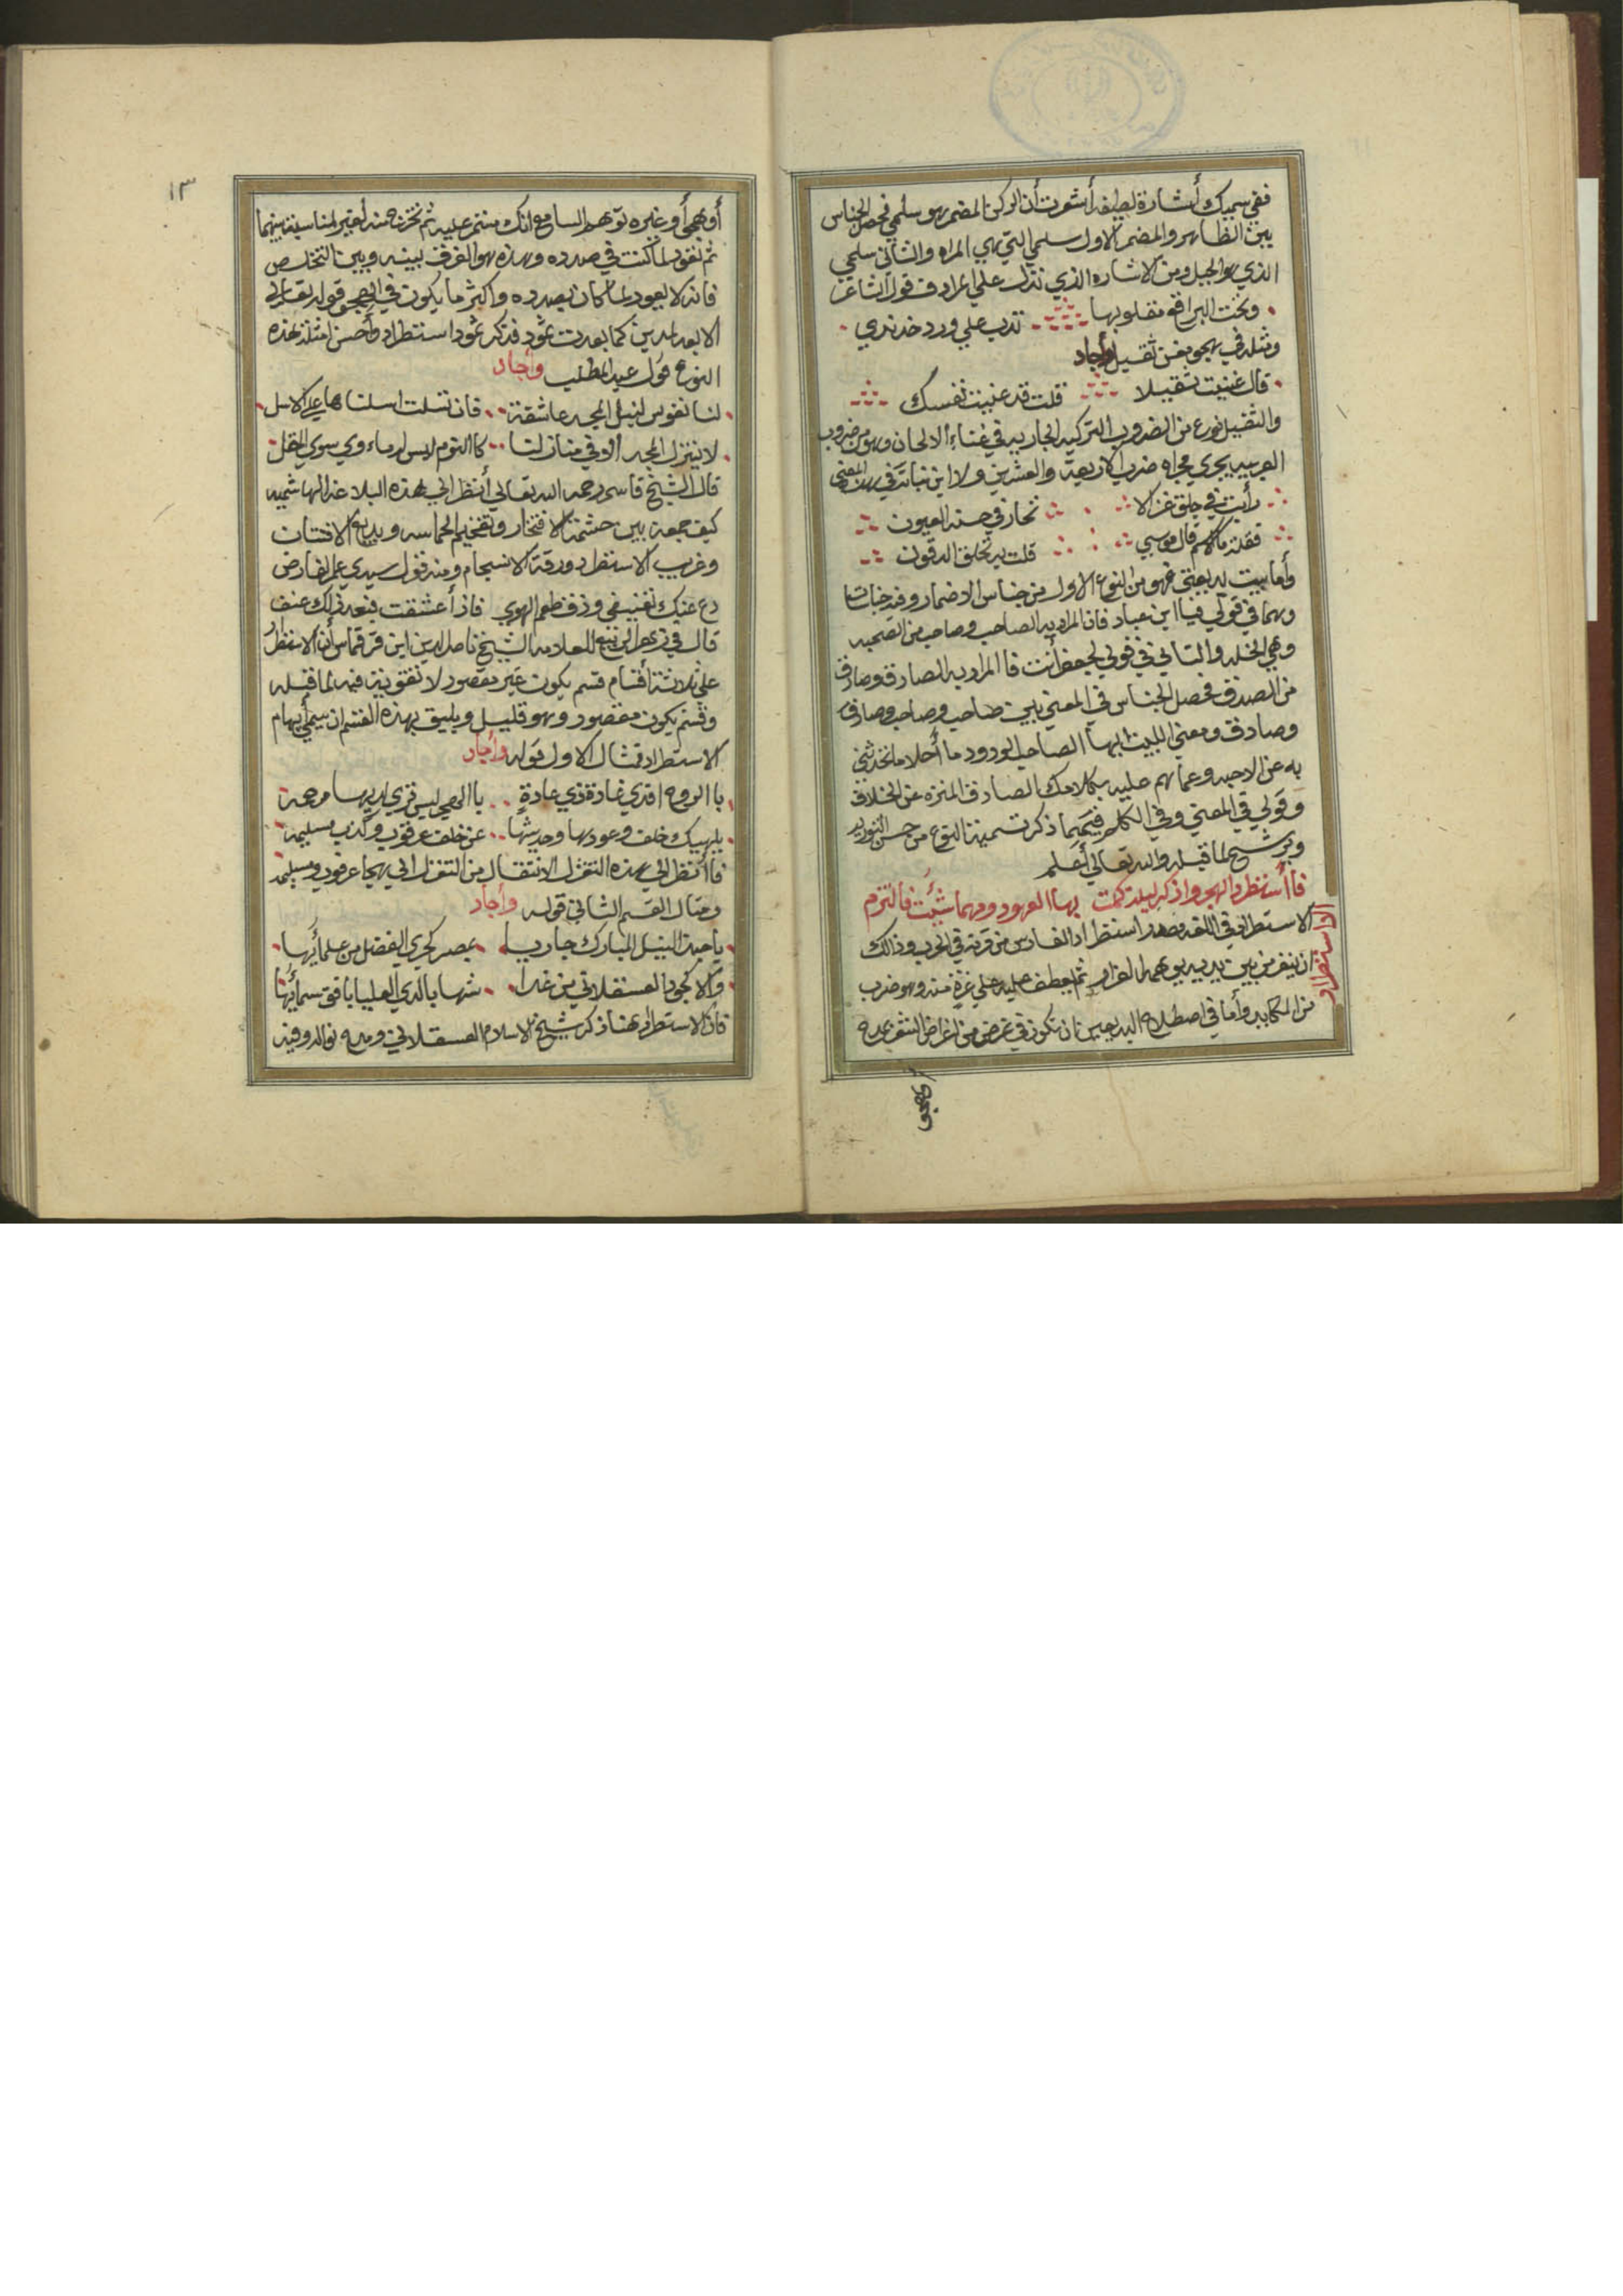 ففي سميك أشارة لطيفه أشعرت أن الركن المضمر هو سلمي فحصل الجناس
بين الظاهر والمضمر الاول سلمي التي هي المراه والثاني سلمي
الذي هو الجبل ومن الاشاره الذي تدل علي المراد قول الشاعر
وتحت البراقع مقلوبها تدب علي ورد خد ندي
ومثله في هجو مغن ثقيل وأجاد
قال غنيت ثقيلا قلت قد غنيت نفسك
والثقيل نوع من الضروب التركيه الجاريه في غناء الالحان وهو من ضروب
العربيه يجري مجراه ضرب الاربعة والعشرين ولابن نباته في هذا المعني
رأيت في جلق غزالا تحار في حسنه العيون
فقلت ما الاسم قال موسي قلت به تحلق الدقون
وأما بيت بديعيتي فهو من النوع الاول من جناس الاضمار وفيه جناسان
وهما في قولي فيا ابن عباد فان المراد به الصاحب وصاحب من الصحبه
وهي الخله والثاني في قولي لجعفر أنت فا المراد به الصادق وصادق
من الصدق فحصل الجناس في المعني بين صاحب وصاحب وصادق
وصادق ومعني البيت ايها الصاحب الودود ما أحلا ما تحدثني
به عن الاحبه وعما هم عليه بكلامك الصادق المنزه عن الخلاف
وقولي في المعني وفي الكلم فيهما ذكر تسمية النوع من حسن التوريه
وترشيح لما قبله والله تعالي أعلم
فا أستطرد الهجو واذكر ليلة كمت بها العهود ومهما شئت فا لتزم
الاستطراد
الاستطراد في اللغه مصدر استطراد الفارس من قرنه في الحرب وذالك
ان يفر من بين يديه يوهمه الفرار ثم يعطف عليه علي غرة منه وهو ضرب
من المكايد وأما في اصطلاح البديعيين ان تكون في غرض من أغراض الشعر مدح
أوهجي
١٣
أوهجي أو غيره توهم السامع انك مستمر عليه ثم تخرج منه لغير لمناسبة بينهما
ثم تعود لما كنت في صدده وهذه هو الفرق بينه وبين التخلص
فانه لا يعود لما كان بصدده وأكثر ما يكون في الهجي قوله تعالي
الا بعدا لمدين كما بعدت ثمود فذكر ثمود استطراد وأحسن امثلة هذه
النوع قول عبد المطلب وأجاد
لنا نفوس لنيل المجد عاشقة فان تسلت اسلناها علي الاسل
لا ينزل المجد الا في منازلنا كا النوم ليس له ماءوي سوي المقل
قال الشيخ قاسم رحمه الله تعالي أنظر الي هذه البلاغه الهاشميه
كيف جمعة بين حشمة الافتخار وتفخيم الحماسه وبديع الافتتان
وغريب الاستطراد ورقة الانسجام ومنه قول سيدي عمر الفارض
دع عنك تعنيفي وذق طعم الهوي فاذا عشقت فبعد ذلك عنف
قال في زهر الربيع للعلامه الشيخ ناصر الدين ابن قرقماس أن الاستطراد
علي ثلاثة أقسام قسم يكون غير مقصود لا تقوية فيه لما قبله
وقسم يكون مقصود وهو قليل ويليق بهذه القسم ان يسمي أيهام
الاستطراد فمثال الاول قوله وأجاد
با الروح افدي غادة ذي عادة با الصحي ليس تري لديها مرحمه
يلهيك خلف وعودها وحديثها عن خلف عرقوب وكذب مسيلمه
فا أنظر الي هذه التغزل الانتقال من التغزل الي هجا عرقوب ومسيلمه
ومثال القسم الثاني قوله وأجاد
يا حبذا النيل المبارك جاريا بمصر كجري الفضل من علمائها
والا كجود العسقلاني من غدا شهابا لدي العليا بافق سمائها
فان الاستطراد هنا ذكر شيخ الاسلام العسقلاني ومدح نواله وفيه